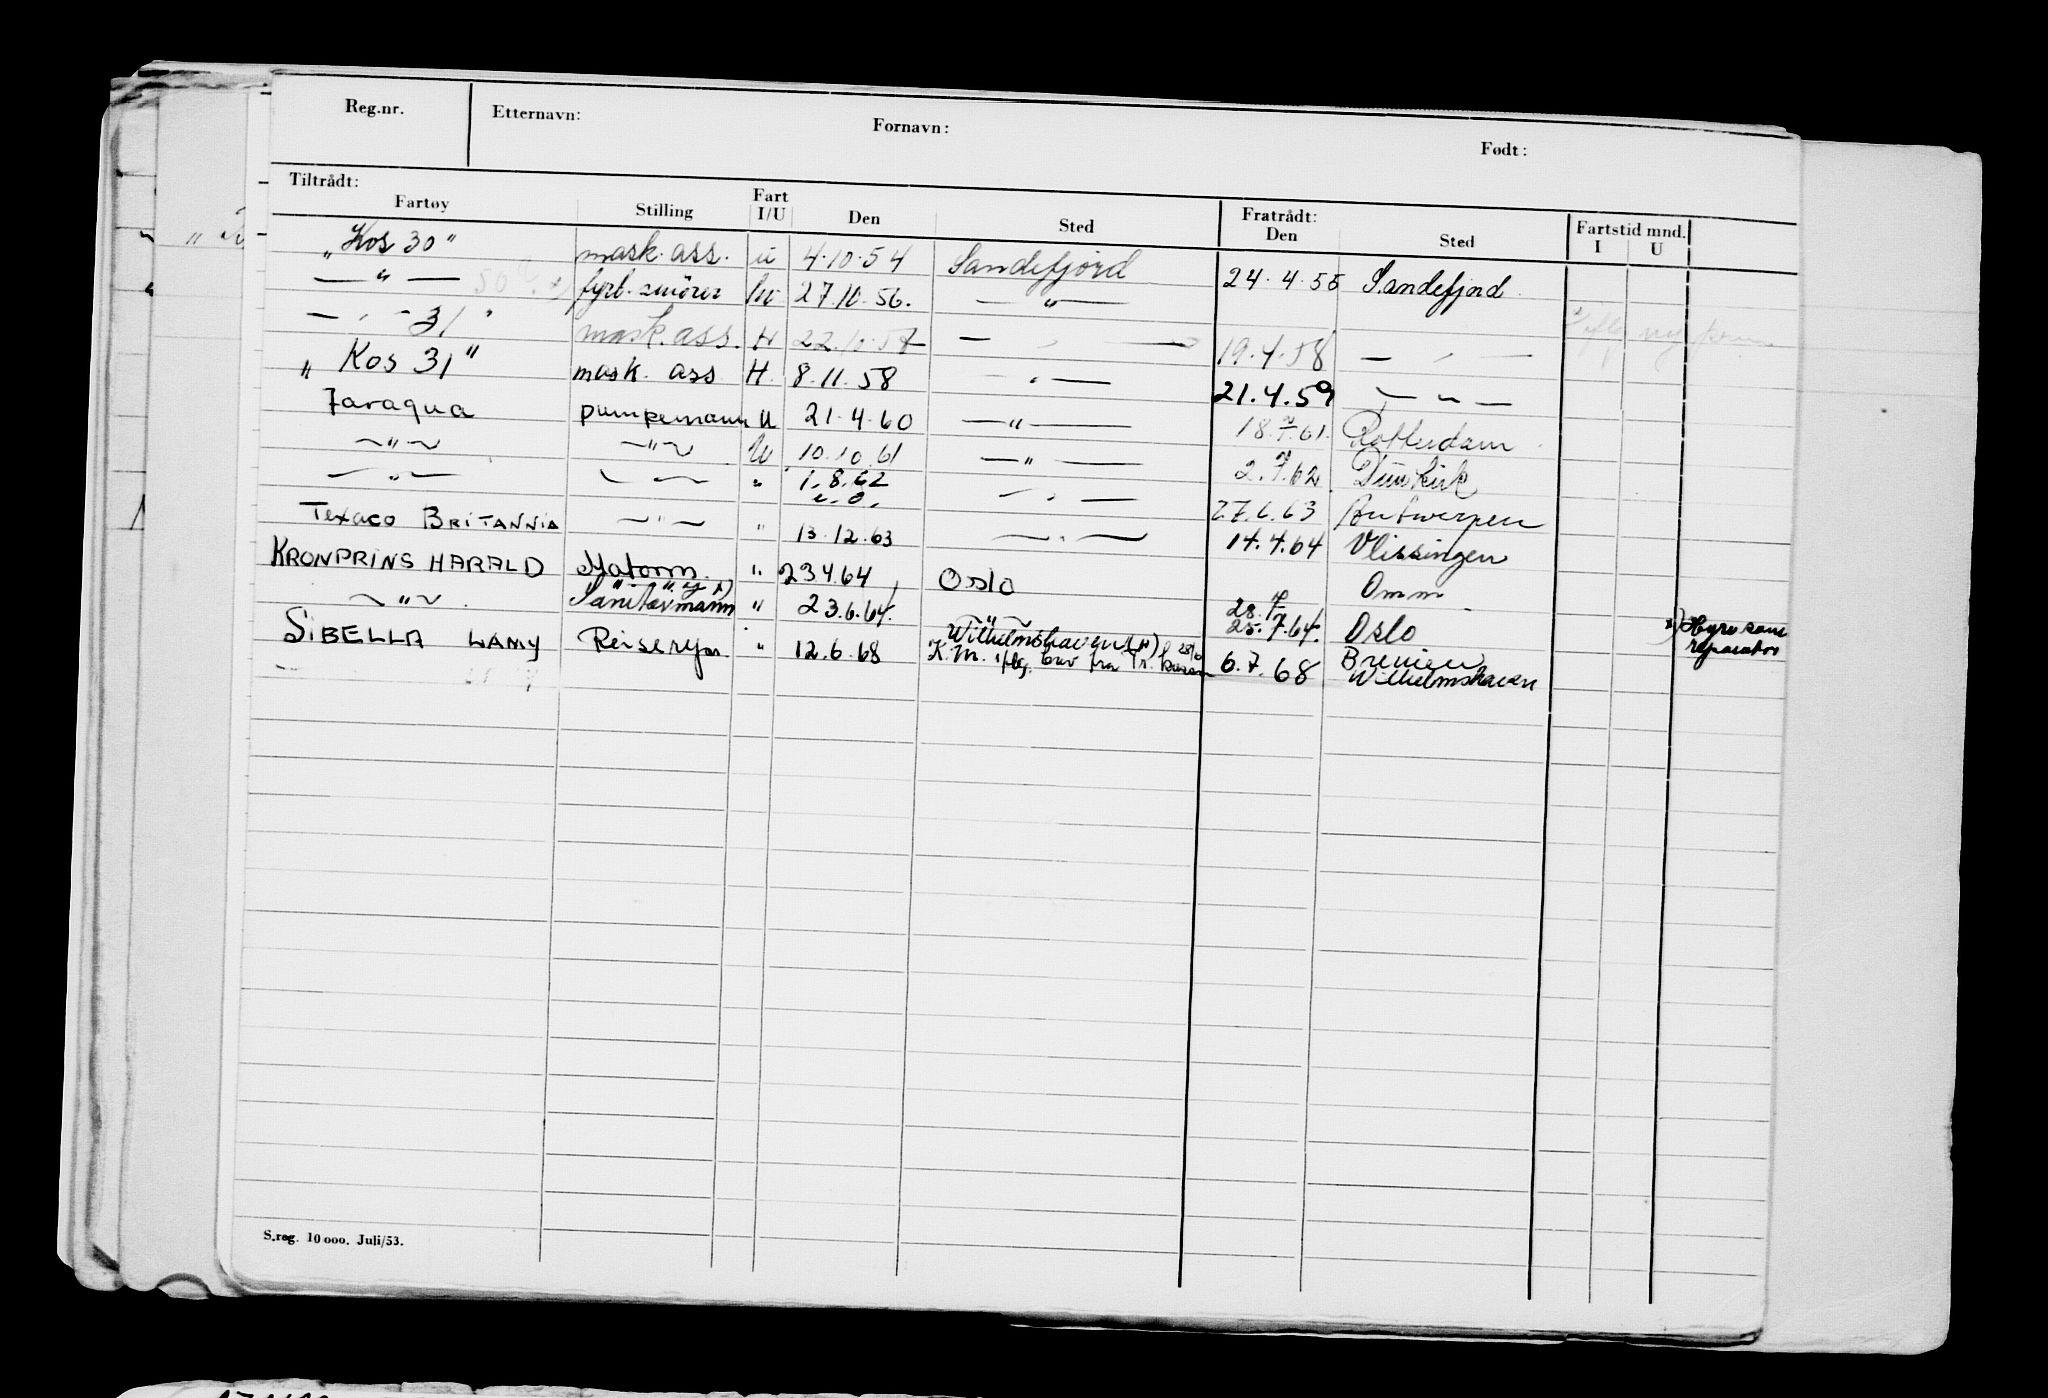 Reg.nr. Etternavn: Fornavn: Født:
Tiltrådt: Fratrådt: Fartstid mnd.
Fartøy Stilling Fart I/U Den Sted Den Sted I U
„Kos 30" mask. ass. u 4.10.54 Sandefjord 24.4.55 Sandefjord
— " — fyrb. smörer 27.10.56. — " —
— " - 31 " mask. ass. H 22.10.57 — " — 19.4.58 — " —
„ Kos 31" mask. ass H. 8.11.58 — " — 21.4.59 — " —
Taraqua pumpemann U 21.4.60 — " — 18. .61. Rotterdam
— " — — " — U 10.10.61 — " — 2. .62. Dünkirk
— " — — " — " 1.8.62 — " — 27.6.63 Antwerpen
Texaco BRITANNIA — " — " 13.12.63 — " — 14.4.64 Vlissingen
KRONPRINS HARALD Matorm. " 23.4.64 Oslo Omm
— " — Sanitærmann x) " 23.6.64. — " — 25.7.64. Oslo x) Hyre som reparatør
SIBELLA LAMY Reiserep. " 12.6.68 Wilhelmshaven 6.7.68 Bremen
K.M. iflg. brev fra Wilhelmshaven
S.reg. 10 000. Juli/53.